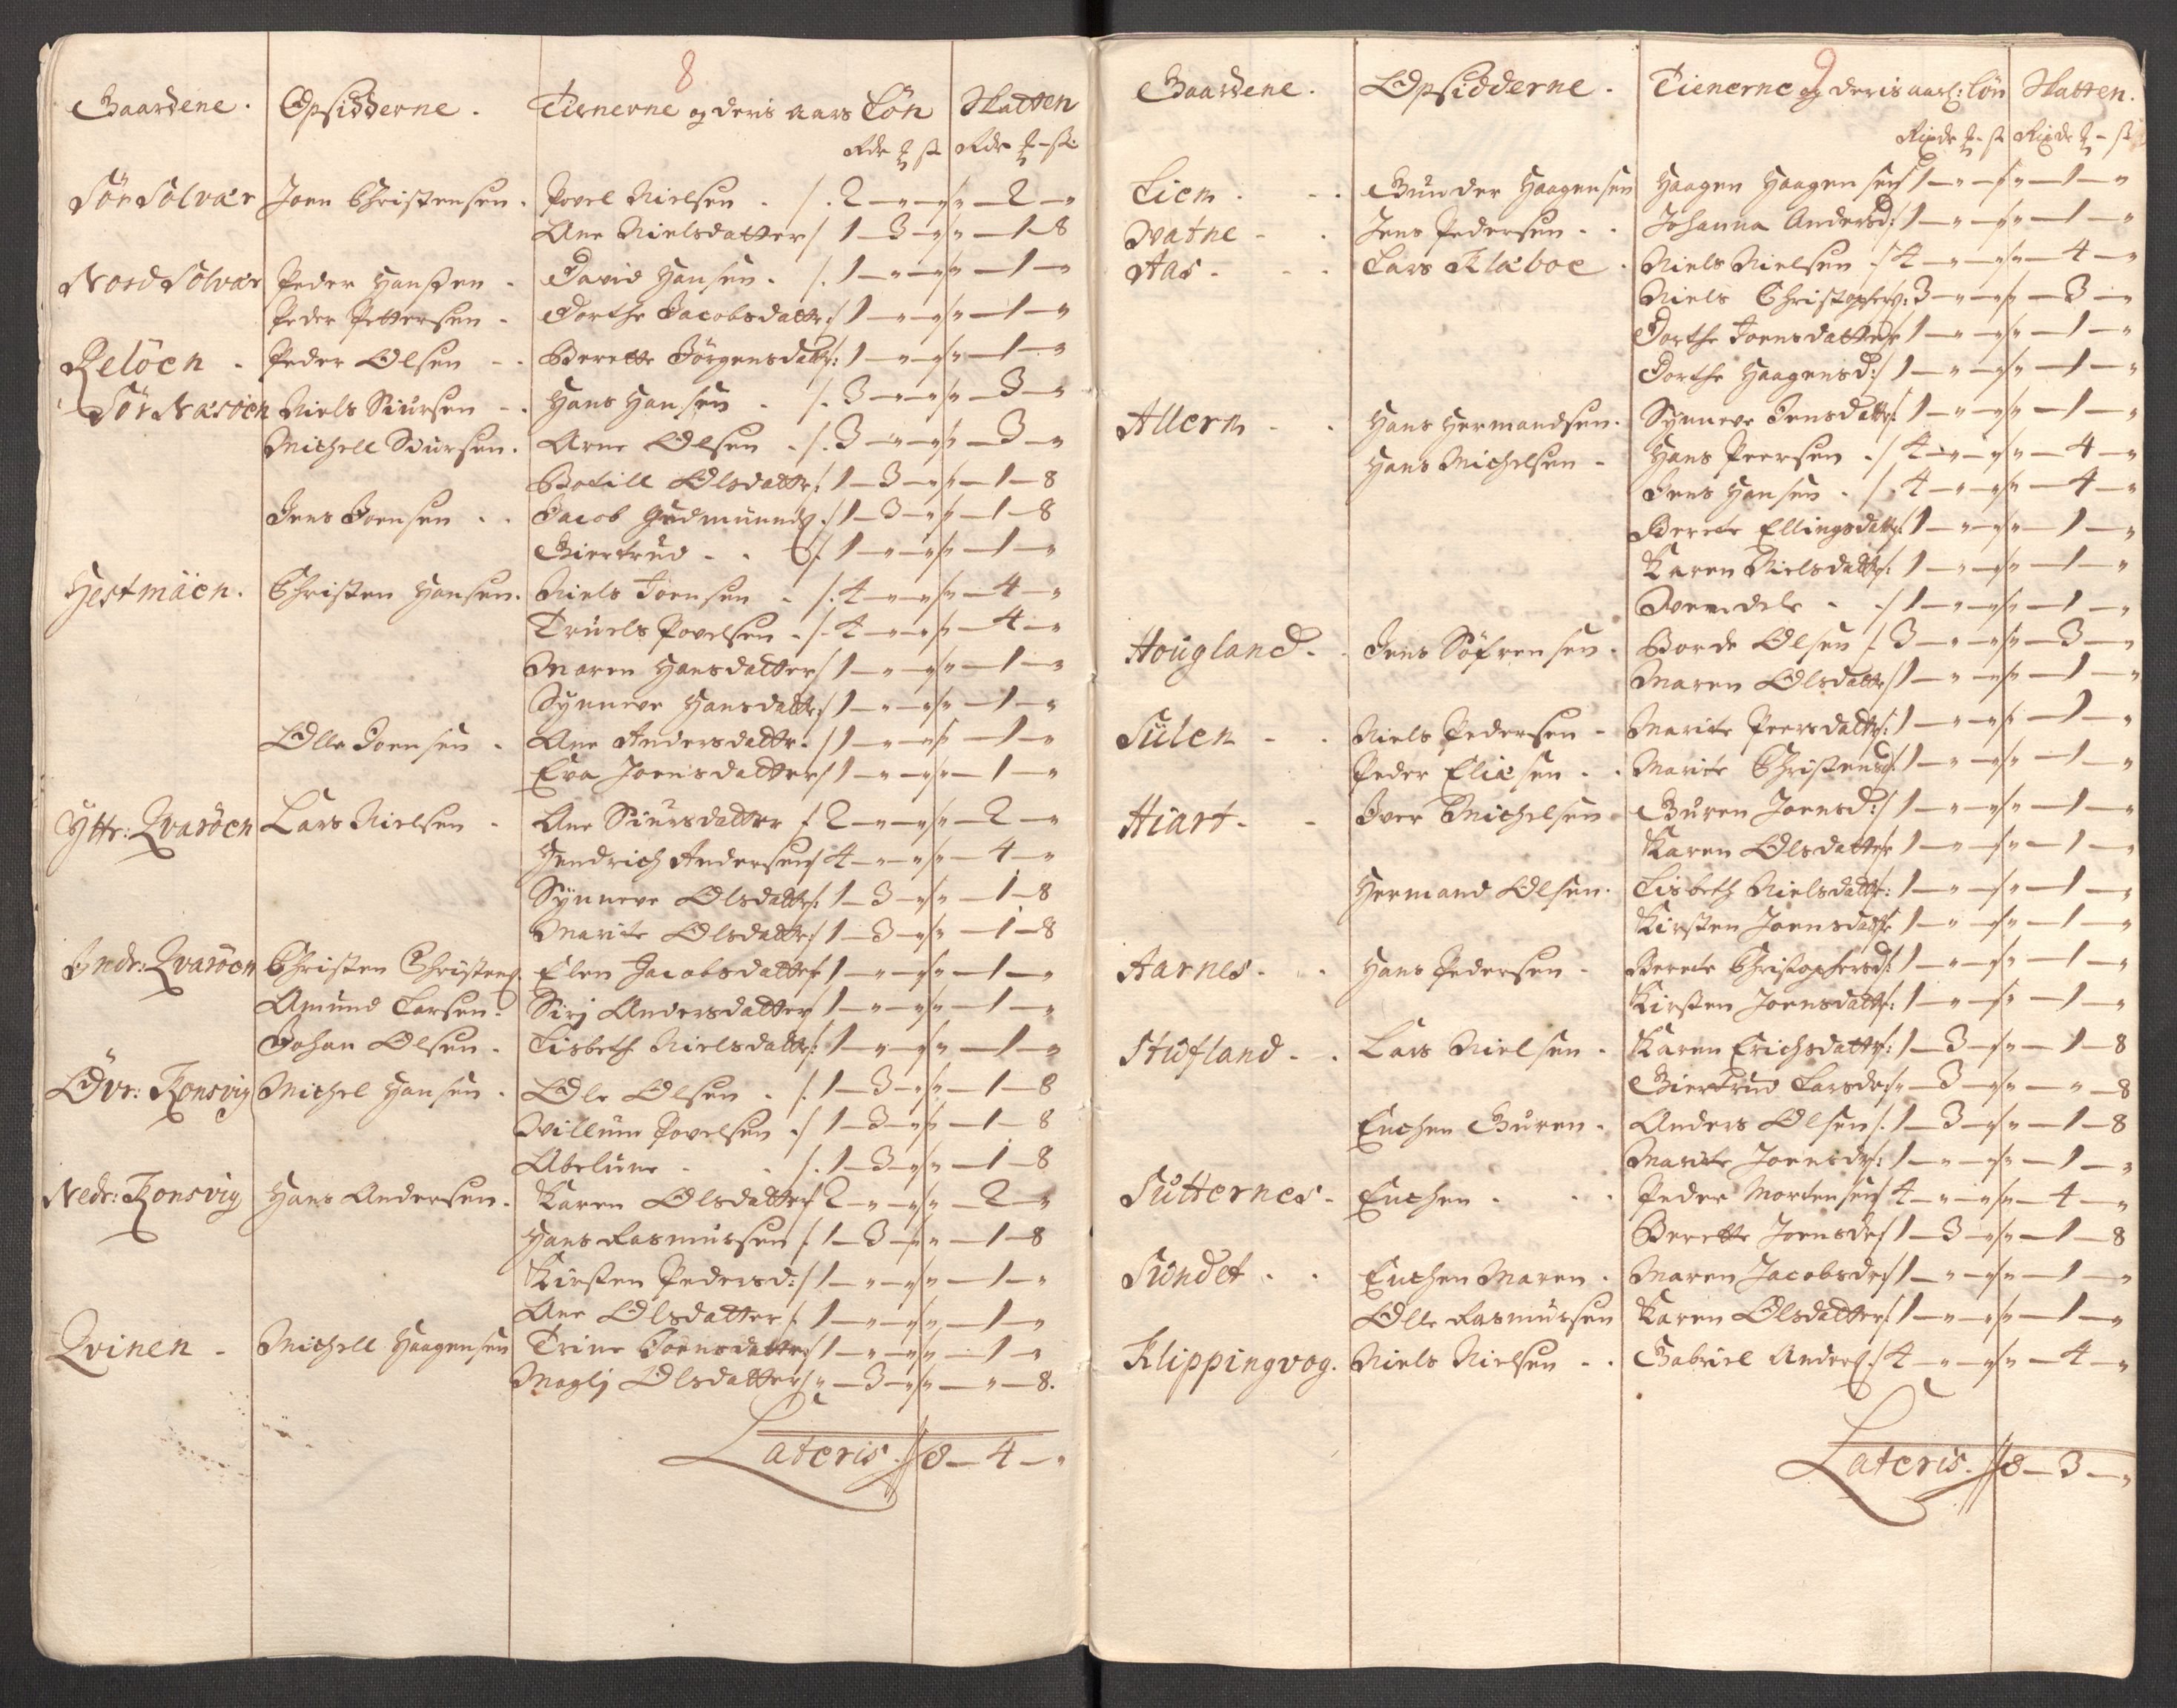 8
Gaardene. Opsidderne. Tienerne og deris aars Lön Skatten
Rdr ₰ s Rdr ₰ - s:
Sör Solvær Joen Christensen. Povel Nielsen . /. 2 — „ — „ „ — 2 — „
Ane Nielsdatter / 1 — 3 — „ „ — 1 — 8
Nord Solvær Peder Hansen - David Hansen . /. 1 — „ — „ „ — 1 — „
Peder Pettersen - Dorthe Jacobsdattr: / 1 — „ — „ „ — 1 — „
Selöen - Peder Olsen - - Berette Jörgensdattr: 1 — „ — „ „ — 1 — „
Sör Næsöen Niels Siursen - . Hans Hansen . /. 3 — „ — „ „ — 3 — „
Michell Siursen. Arne Olsen . /. 3 — „ — „ „ — 3 — „
Botill Olsdattr: 1 — 3 — „ „ — 1 — 8
Jens Joensen . . Jacob Gudmunds: / 1 — 3 — „ „ — 1 — 8
Giertrud - . /. 1 — „ — „ „ — 1 — „
Hestmäen. Christen Hansen. Niels Joensen . /. 4 — „ — „ „ — 4 — „
Truels Povelsen . /. 4 — „ — „ „ — 4 — „
Maren Hansdatter / 1 — „ — „ „ — 1 — „
Synneve Hansdattr: / 1 — „ — „ „ — 1 — „
Olle Joensen . Ane Andersdattr. / 1 — „ — „ „ — 1 — „
Eva Joensdatter / 1 — „ — „ „ — 1 — „
Ytter: Qvaröen Lars Nielsen - Ane Siursdatter / 2 — „ — „ „ — 2 — „
Hendrich Andersen / 4 — „ — „ „ — 4 — „
Synneve Olsdattr: 1 — 3 — „ „ — 1 — 8
Marite Olsdattr: / 1 — 3 — „ „ — 1 — 8
Indr: Qvaröen Christen Christens: Elen Jacobsdatter 1 — „ — „ „ — 1 — „
Amund Larsen. Sirj Andersdatter 1 — „ — „ „ — 1 — „
Johan Olsen . Lisbeth Nielsdattr: 1 — „ — „ „ — 1 — „
Övr: Konsvig Michel Hansen . Ole Olsen . /. 1 — 3 — „ „ — 1 — 8
Willum Povelsen . / 1 — 3 — „ „ — 1 — 8
Abelune - . /. 1 — 3 — „ „ — 1 — 8
Nedr: Konsvig Hans Andersen. Karen Olsdatter 2 — „ — „ „ — 2 — „
Hans Rasmussen /. 1 — 3 — „ „ — 1 — 8
Kirsten Pedersd: / 1 — „ — „ „ — 1 — „
Ane Olsdatter /. 1 — „ — „ „ — 1 — „
Qvinen - Michell Haagensen Trine Joensdatter 1 — „ — „ „ — 1 — „
Maglj Olsdatter „ — 3 — „ „ — „ — 8.
Lateris. // 8 — 4 — „
9
Gaardene. Opsidderne. Tienerne og deris aarl: Lön Skatten.
Rixdr ₰ - s Rixdr ₰ - s
Liem . - . Gunder Haagensen Haagen Haagensen 1 — „ — „ „ — 1 — „
Vatne - . Jens Pedersen - . Johanna Andersd: 1 — „ — „ „ — 1 — „
Aas - - . Lars Klæboe . Niels Nielsen . / 4 — „ — „ „ — 4 — „
Niels Christophers: 3 — „ — „ „ — 3 — „
Dorthe Joensdatter 1 — „ — „ „ — 1 — „
Dorthe Haagensd: / 1 — „ — „ „ — 1 — „
Allern - . Hans Hermandsen. Synneve Jensdattr: 1 — „ — „ „ — 1 — „
Hans Michelsen - Hans Peersen . / 4 — „ — „ „ — 4 — „
Jens Hansen . /. 4 — „ — „ „ — 4 — „
Berete Ellingsdattr: 1 — „ — „ „ — 1 — „
Karen Nielsdattr: 1 — „ — „ „ — 1 — „
- . / 1 — „ — „ „ — 1 — „
Hougland . . Jens Söfrensen . Borde Olsen /. 3 — „ — „ „ — 3 — „
Maren Olsdattr / 1 — „ — „ „ — 1 — „
Sulen - . Niels Pedersen - Marite Peersdattr: 1 — „ — „ „ — 1 — „
Peder Eliæsen . . Marite Christensd: 1 — „ — „ „ — 1 — „
Hiart - - Iver Michelsen Guren Joensd: / 1 — „ — „ „ — 1 — „
Karen Olsdatter 1 — „ — „ „ — 1 — „
Hermand Olsen. Lisbeth Nielsdattr: 1 — „ — „ „ — 1 — „
Kirsten Joensdattr 1 — „ — „ „ — 1 — „
Aarnes - . Hans Pedersen - Berete Christophersd: 1 — „ — „ „ — 1 — „
Kirsten Joensdattr: 1 — „ — „ „ — 1 — „
Stufland - . Lars Nielsen . Karen Erichsdattr: 1 — 3 — „ „ — 1 — 8
Giertrud Larsdr: „ — 3 — „ „ — „ — 8
Enchen Guren . Anders Olsen /. 1 — 3 — „ „ — 1 — 8
Marite Joensdr: 1 — „ — „ „ — 1 — „
Sutternes - Enchen . . . Peder Mortensen 4 — „ — „ „ — 4 — „
Berette Joensdr 1 — 3 — „ „ — 1 — 8
Sundet . . Enchen Maren . Maren Jacobsdr: 1 — „ — „ „ — 1 — „
Olle Rasmussen Karen Olsdatter: 1 — „ — „ „ — 1 — „
Klippingvog. Niels Nielsen - . Gabriel Anders: / 4 — „ — „ „ — 4 — „
Lateris. // 8 — 3 — „